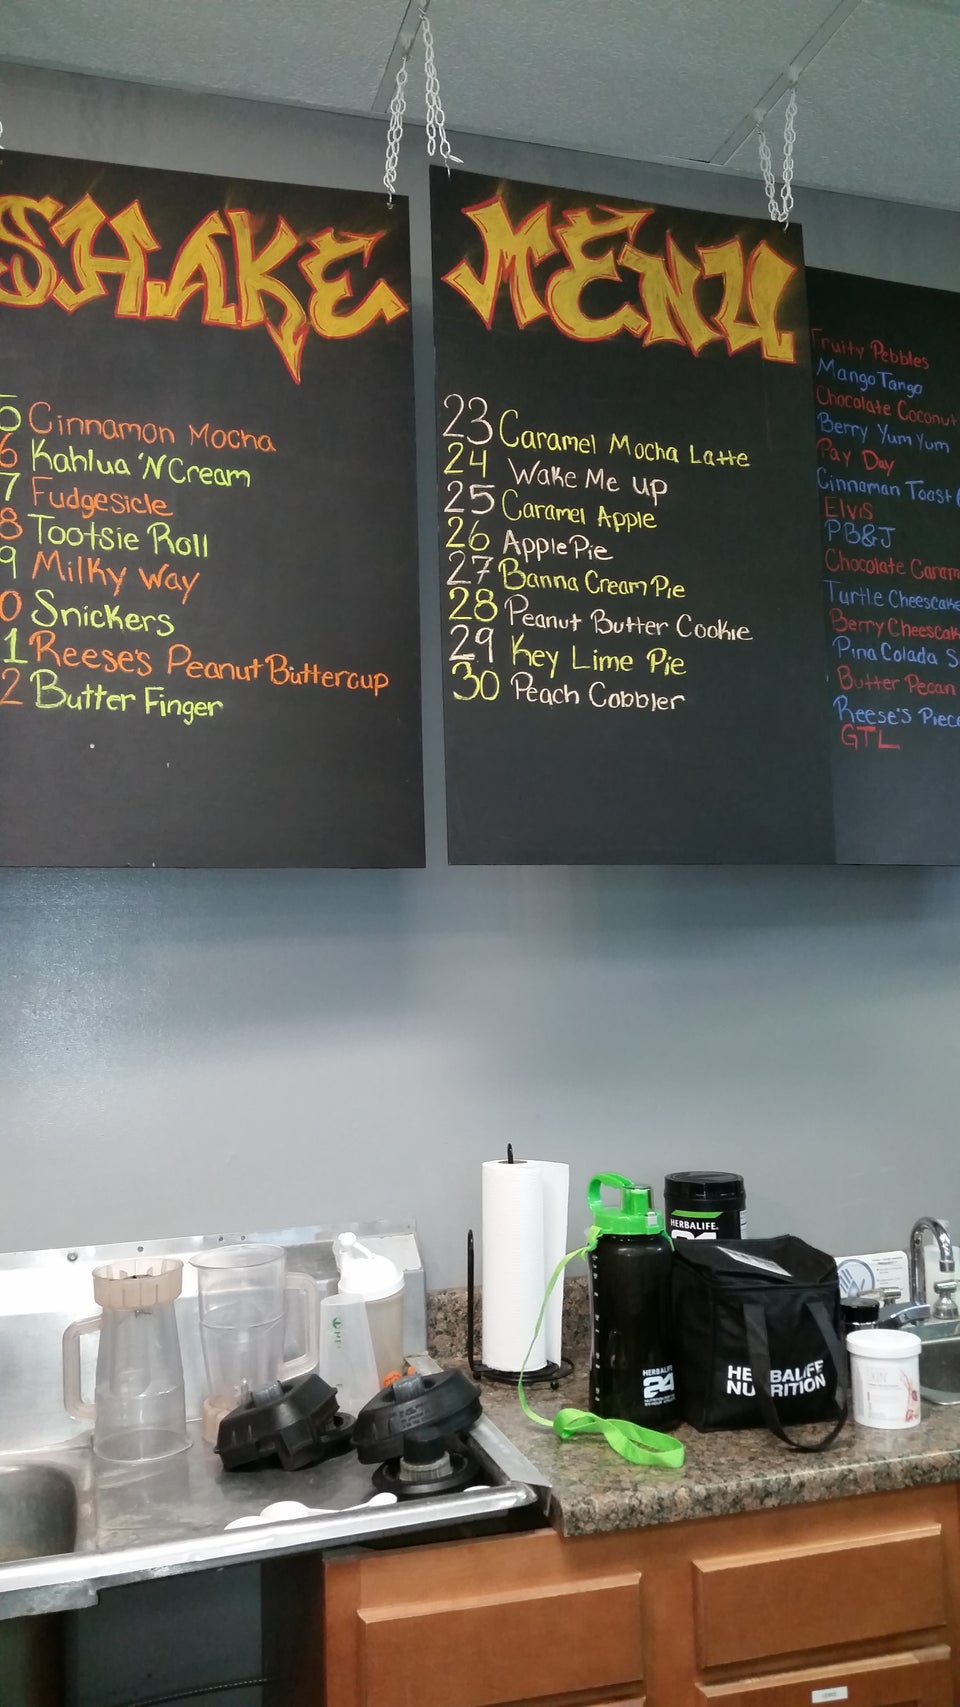 SHAKE
5 Cinnamon Mocha
6 Kahlua 'N Cream
7 Fudgesicle
8 Tootsie Roll
9 Milky Way
0 Snickers
1 Reese's Peanut Buttercup
2 Butter Finger
MENU
23 Caramel Mocha Latte
24 Wake Me up
25 Caramel Apple
26 Apple Pie
27 Banna Cream Pie
28 Peanut Butter Cookie
29 Key Lime Pie
30 Peach Cobbler
Fruity Pebbles
Mango Tango
Chocolate Coconut
Berry Yum Yum
Pay Day
Cinnaman Toast
Elvis
PB&J
Chocolate Caram
Turtle Cheesecake
Berry Cheesecak
Pina Colada S
Butter Pecan
Reese's Piece
GTL
HERBALIFE
24
HERBALIFE.
24
HERBALIFE
NUTRITION
SKIN